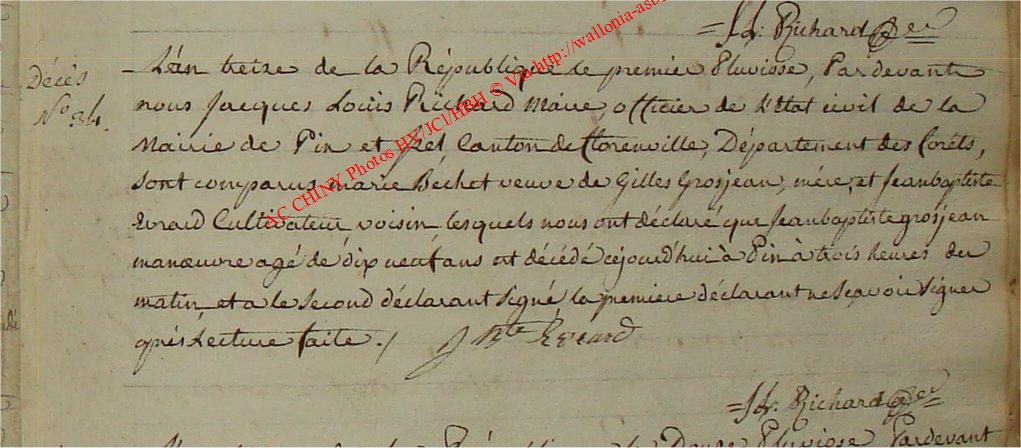 J L: Richard
Décès
N.o 34.
L'an treize de la République le premier Pluviose, Pardevant
nous Jacques Louis Richard Maire, officier de l'Etat civil de la
Mairie de Pin et Izel Canton de florenville, Département des forêts,
sont comparus marie Bechet veuve de Gilles Grosjean, mére, et Jeanbaptiste
Evrard Cultivateur voisin, lesquels nous ont déclaré que Jeanbaptiste grosjean
manœuvre agé de dix neuf ans est décédé cejourd'hui à Pin à trois heures du
matin, et a le second déclarant signé la premiere déclarant ne sçavoir signer
après Lecture faite. / J Bte Evrard
J L: Richard
AC CHINY Photos HY/JCl/HBH © Via http://wallonia-asb
République le Douze Pluviose Pardevant